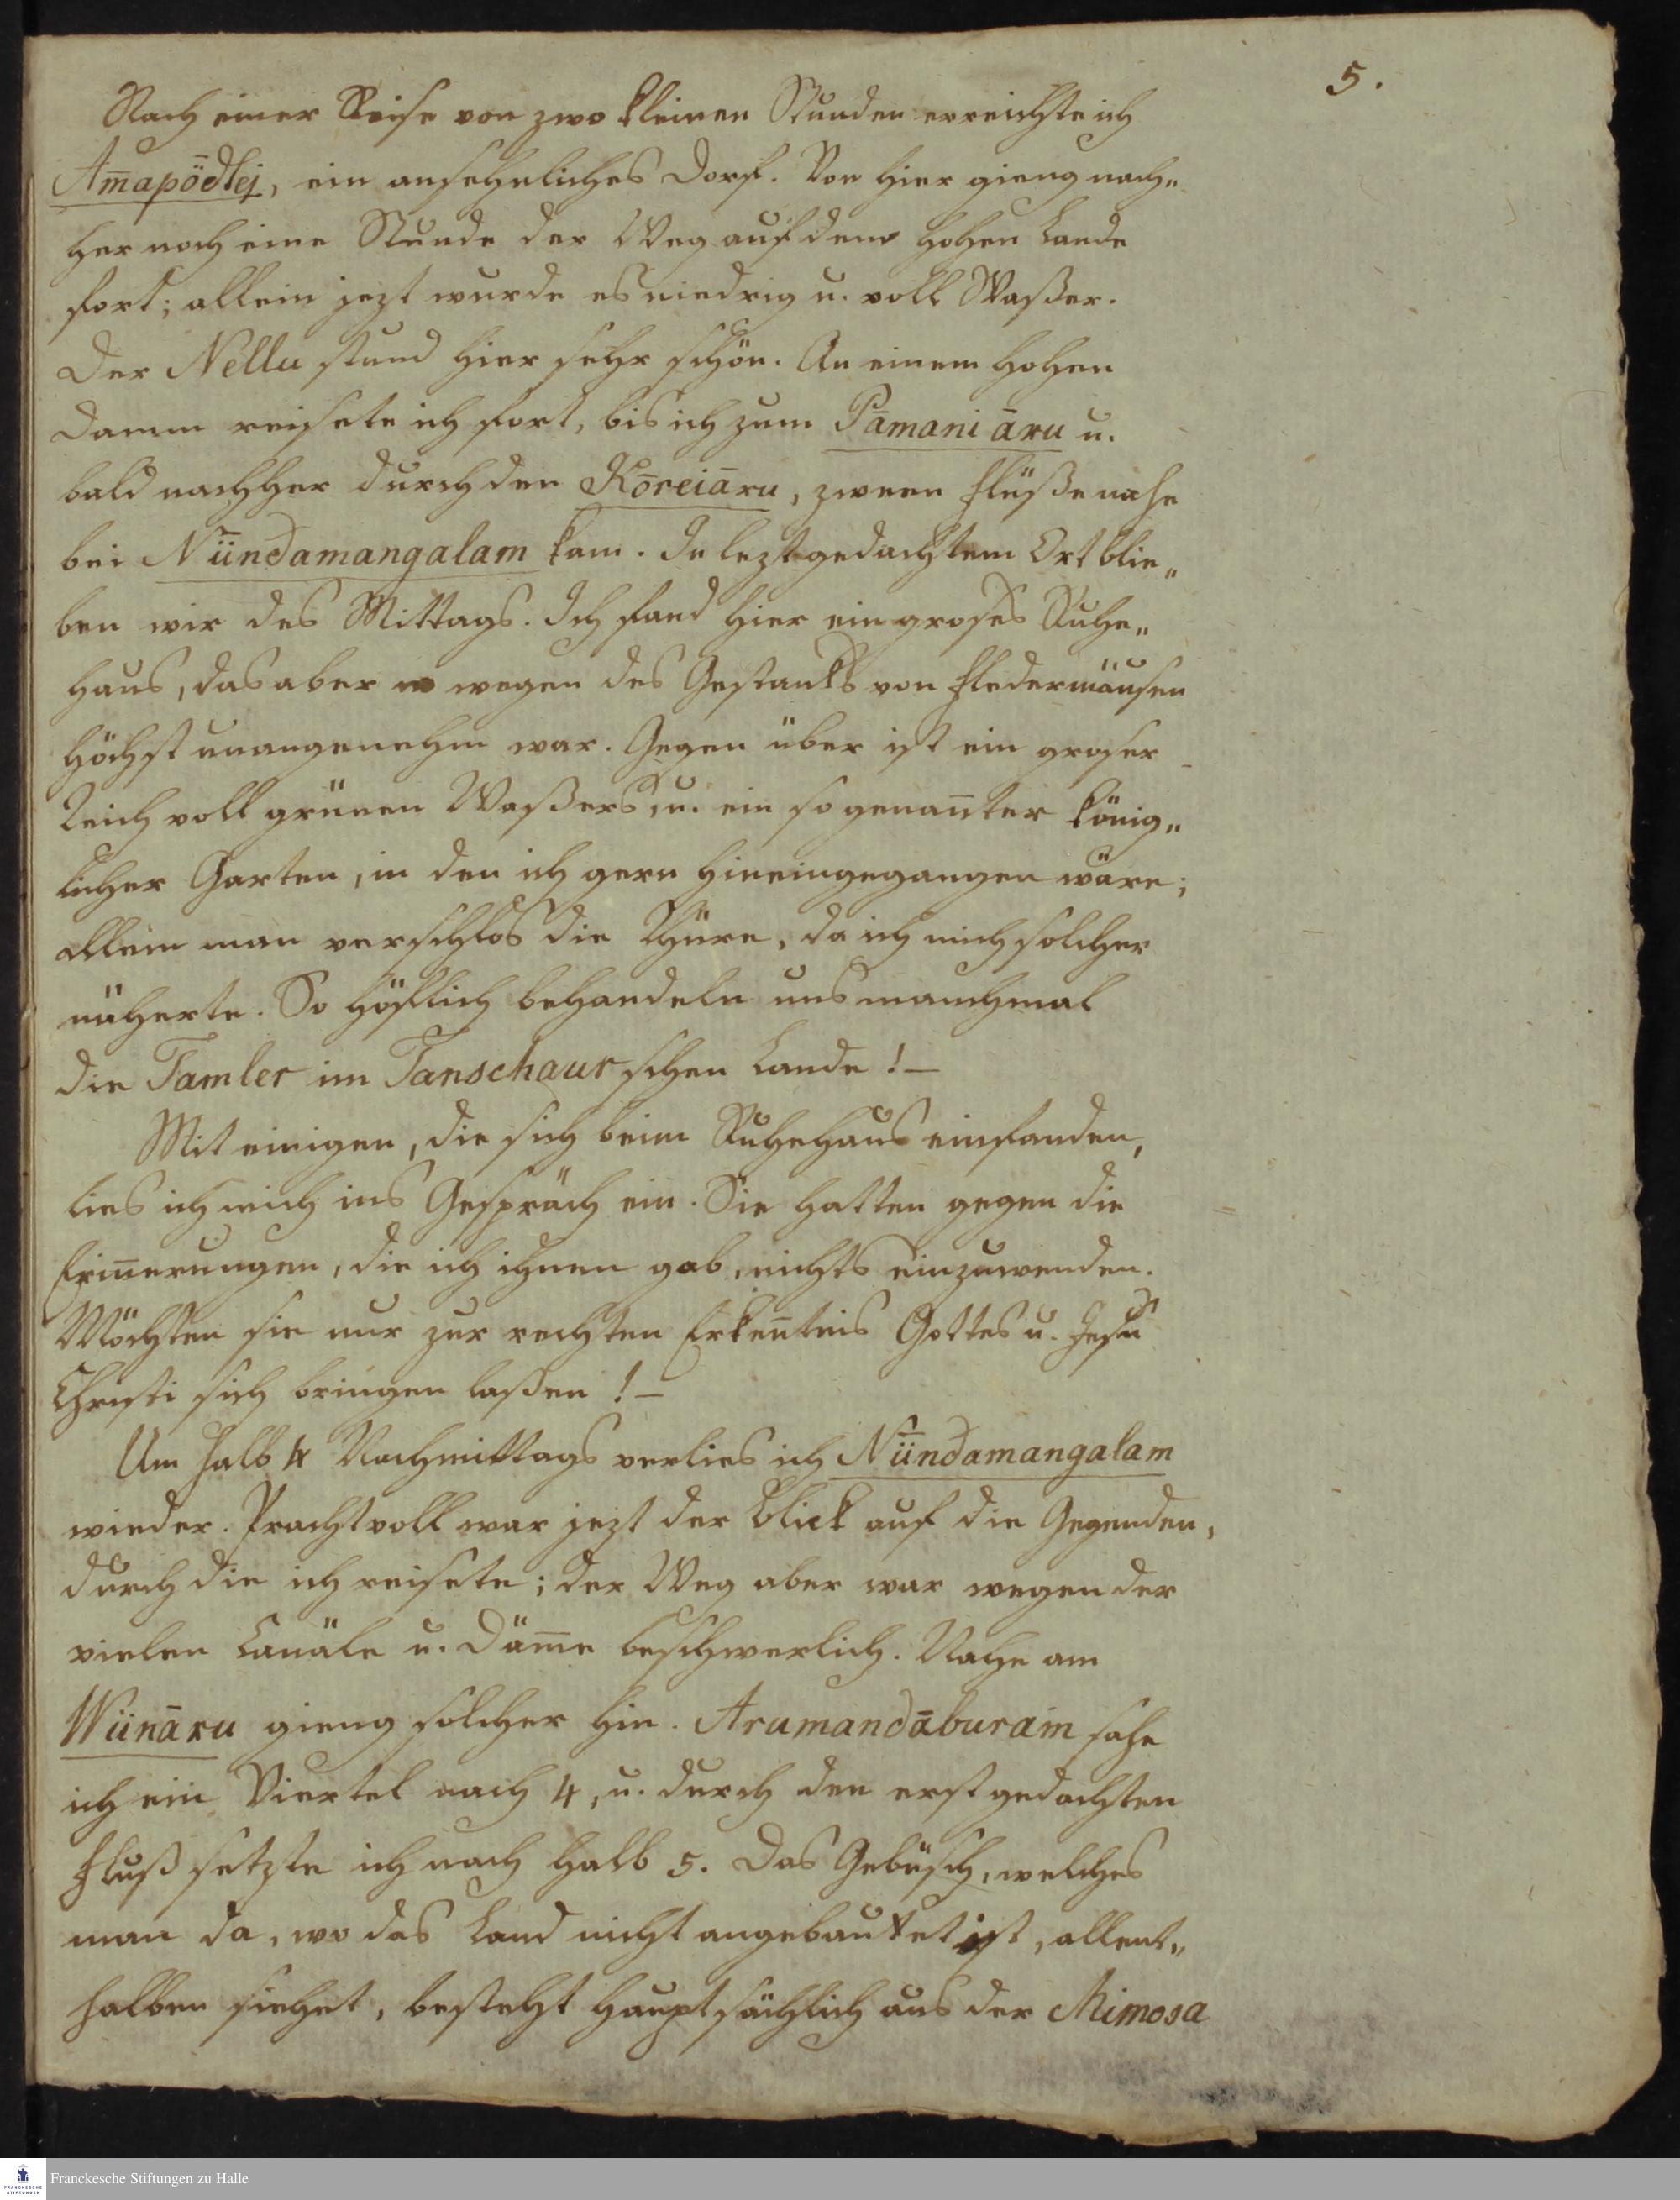 5.
Nach einer Reise von zwo kleinen Stunden erreichte ich
Am̄apöd̄tej, ein ansehnliches Dorf. Von hier gieng nach„
her noch eine Stunde der Weg auf dem hohen Lande
fort; allein jezt wurde es niedrig u. voll Waßer.
Der Nellu stund hier sehr schön. An einem hohen
Damm reisete ich fort, bis ich zum Pāmani āru u.
bald nachher durch den Kōreiāru, zween Flüße nahe
bei Nündamangalam kam. In leztgedachtem Ort blie„
ben wir des Mittags. Ich fand hier ein groses Ruhe„
haus, das aber wegen des Gestanks von Fledermäusen
höchst unangenehm war. Gegen über ist ein groser
Teich voll grünen Waßers, u. ein so genan̄ter König„
licher Garten, in den ich gern hineingegangen wäre;
allein man verschlos die Thüre, da ich mich solcher
näherte. So höflich behandeln uns manchmal
die Tamler im Tanschaurschen Lande! —
Mit einigen, die sich beim Ruhehaus einfanden,
lies ich mich ins Gespräch ein. Sie hatten gegen die
Erin̄erungen, die ich ihnen gab, nichts einzuwenden.
Möchten sie nur zur rechten Erken̄tnis Gottes u. Jesu
Christi sich bringen laßen! —
Um halb 4 Nachmittags verlies ich Nündamangalam
wieder. Prachtvoll war jezt der Blick auf die Gegenden,
durch die ich reisete; der Weg aber war wegen der
vielen Canäle u. Däm̄e beschwerlich. Nahe am
Wünāru gieng solcher hin. Arumandāburam sahe
ich ein Viertel nach 4, u. durch den erst gedachten
Fluß setzte ich nach halb 5. Das Gebüsch, welches
man da, wo das Land nicht angebautet ist, allent„
halben siehet, besteht hauptsächlich aus der Mimosa
Franckesche Stiftungen zu Halle
FRANCKESCHE
STIFTUNGEN